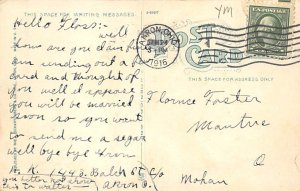 THIS SPACE FOR WRITING MESSAGES.
Hello Floss:- well
how are you
am sending out a
card and thought of
you well I suppose
you will be married
soon so you want
to send me a segar
well bye bye from
1445 Balch St c/o
Akron O.
you better not show
this to walter
POST CARD
AKRON, OHIO
1916
YM
THIS SPACE FOR ADDRESS ONLY
Florence Foster
Mantua
O
Mohan